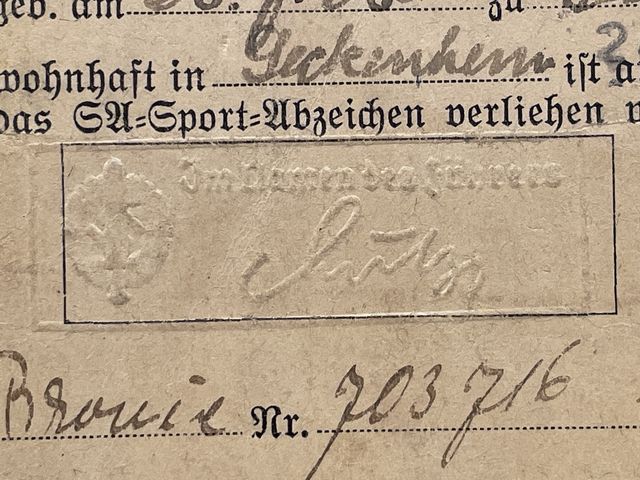 geb. am zu
wohnhaft in Geckenheim ist a
das SA-Sport-Abzeichen verliehen w
Im Namen des Führers
Lutze
Bronce Nr. 703 716